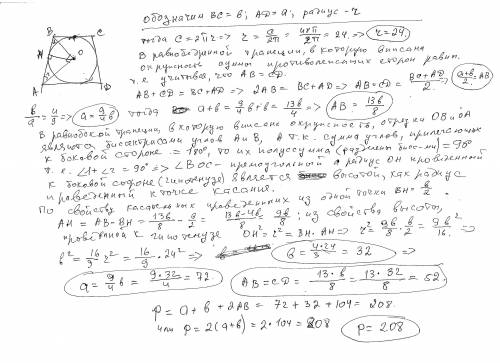 обозначим BC = b; AD = a, радиус - r
тогда C = 2πr => r = C/2π = 48π/2π = 24. => r = 24.
В равнобедренной трапеции, в которую вписана
окружность, суммы противолежащих сторон равны.
т.е. учитывая, что AB = CD.
AB + CD = BC + AD => 2AB = BC + AD => AB = CD =
b/a = 4/9 => a = 9/4 b тогда a + b = 9/4 b + b = 13b/4 => AB = 13b/8
В равнобокой трапеции, в которую вписана окружность, отрезки OB и OA
являются биссектрисами углов A и B, а т.к. сумма углов, прилегающих
к боковой стороне = 180°, то их полусумма = 90°
т.е. ∠1 + ∠2 = 90° => прямоугольной а радиус OH проведенной
к боковой стороне (гипотенузе) является высотой, как радиус
проведенный к точке касания.
По свойству касательных проведенных из одной точки BH = b/2.
AH = AB - BH = 13b/8 - b/2 = 13b - 4b/8 = 9b/8; из свойства высоты,
проведенной к гипотенузе OH² = r² = BH · AH => r² = 9b/8 · b/2 = 9b²/16. =>
b² = 16/9 r² = 16/9 · 24² => b = 4·24/3 = 32 =>
a = 9/4 b = 9·32/4 = 72. AB = CD = 13·b/8 = 13·32/8 = 52.
P = a + b + 2AB = 72 + 32 + 104 = 208.
или P = 2(a + b) = 2·104 = 208 P = 208
B
C
N
O
A
D